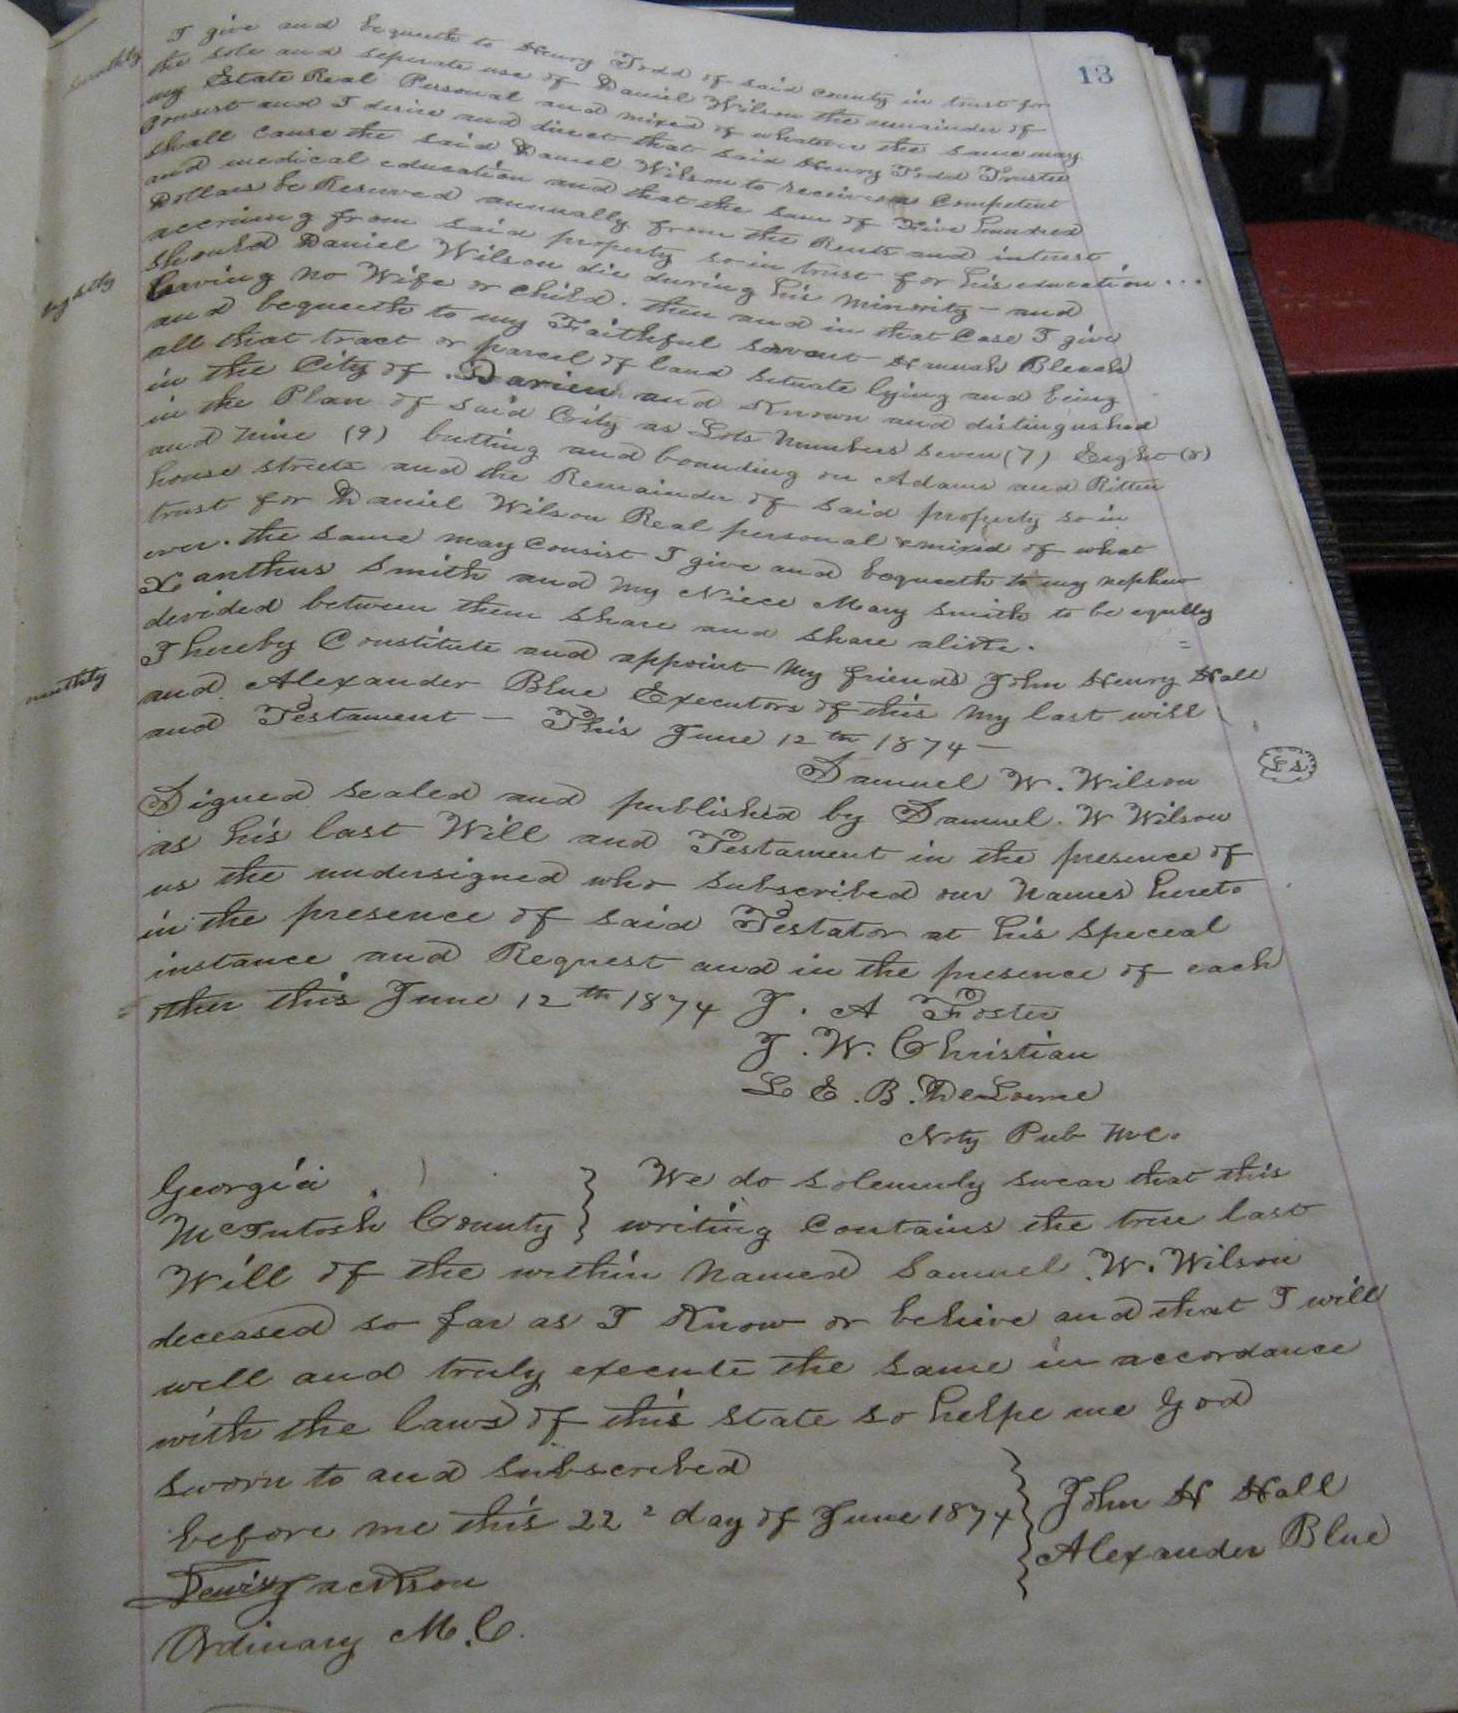 13
Seventhly
I give and bequeath to Henry Todd of said county in trust for
the sole and seperate use of Daniel Wilson the remainder of
my Estate Real Personal and mixed of whatever the same may
Consist and I desire and direct that said Henry Todd Trustee
shall cause the said Daniel Wilson to receive a Competent
and medical education and that the sum of Five hundred
Dollars be Reserved annually from the Rents and interest
accruing from said property so in trust for his education...
Eightly
Should Daniel Wilson die during his minority - and
leaving no Wife or child. then and in that Case I give
and bequeath to my Faithful servant Hannah Bleach
all that tract or parcel of land situate lying and being
in the City of Darien and Known and distinguished
in the Plan of said City as Lots Numbers Seven (7) Eight (8)
and nine (9) butting and bounding on Adams and Ritten
house streets and the Remainder of said property so in
trust for Daniel Wilson Real personal & mixed of what
ever. the same may Consist I give and bequeath to my nephew
Xanthus Smith and my Niece Mary Smith to be eqully
devided between them share and share alike.
ninthly
I hereby Constitute and appoint my friends John Henry Hall
and Alexander Blue Executors of this my last will
and Testament - This June 12th 1874 -
Samuel W. Wilson
LS
Signed sealed and published by Samuel. W Wilson
as his last Will and Testament in the presence of
us the undersigned who subscribed our Names hereto
in the presence of said Testator at his speceal
instance and Request and in the presence of each
= other this June 12th 1874 J. A Foster
J. W. Christian
L E. B. DeLorme
Noty Pub McC.
Georgia
McIntosh County } We do solemnly swear that this
writing Contains the true last
Will of the within Named Samuel. W. Wilson
deceased so far as I Know or believe and that I will
well and truly execute the same in accordance
with the laws of this state so helpe me God
sworn to and subscribed
before me this 22 2 day of June 1874 } John H Hall
Alexander Blue
Lewis Jackson
Ordinary M.C.